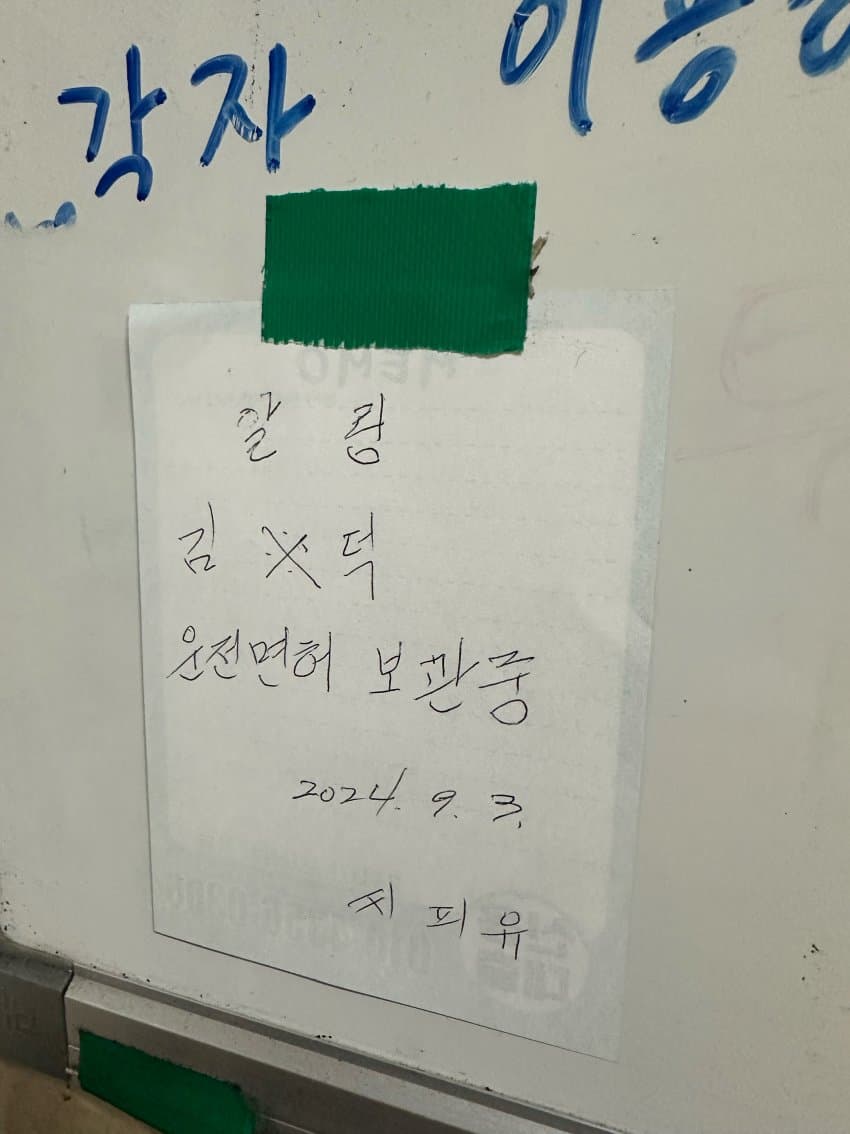 각자 이용
알림
김 ※ 덕
운전면허 보관중
2024. 9. 3.
씨피유
MEMO